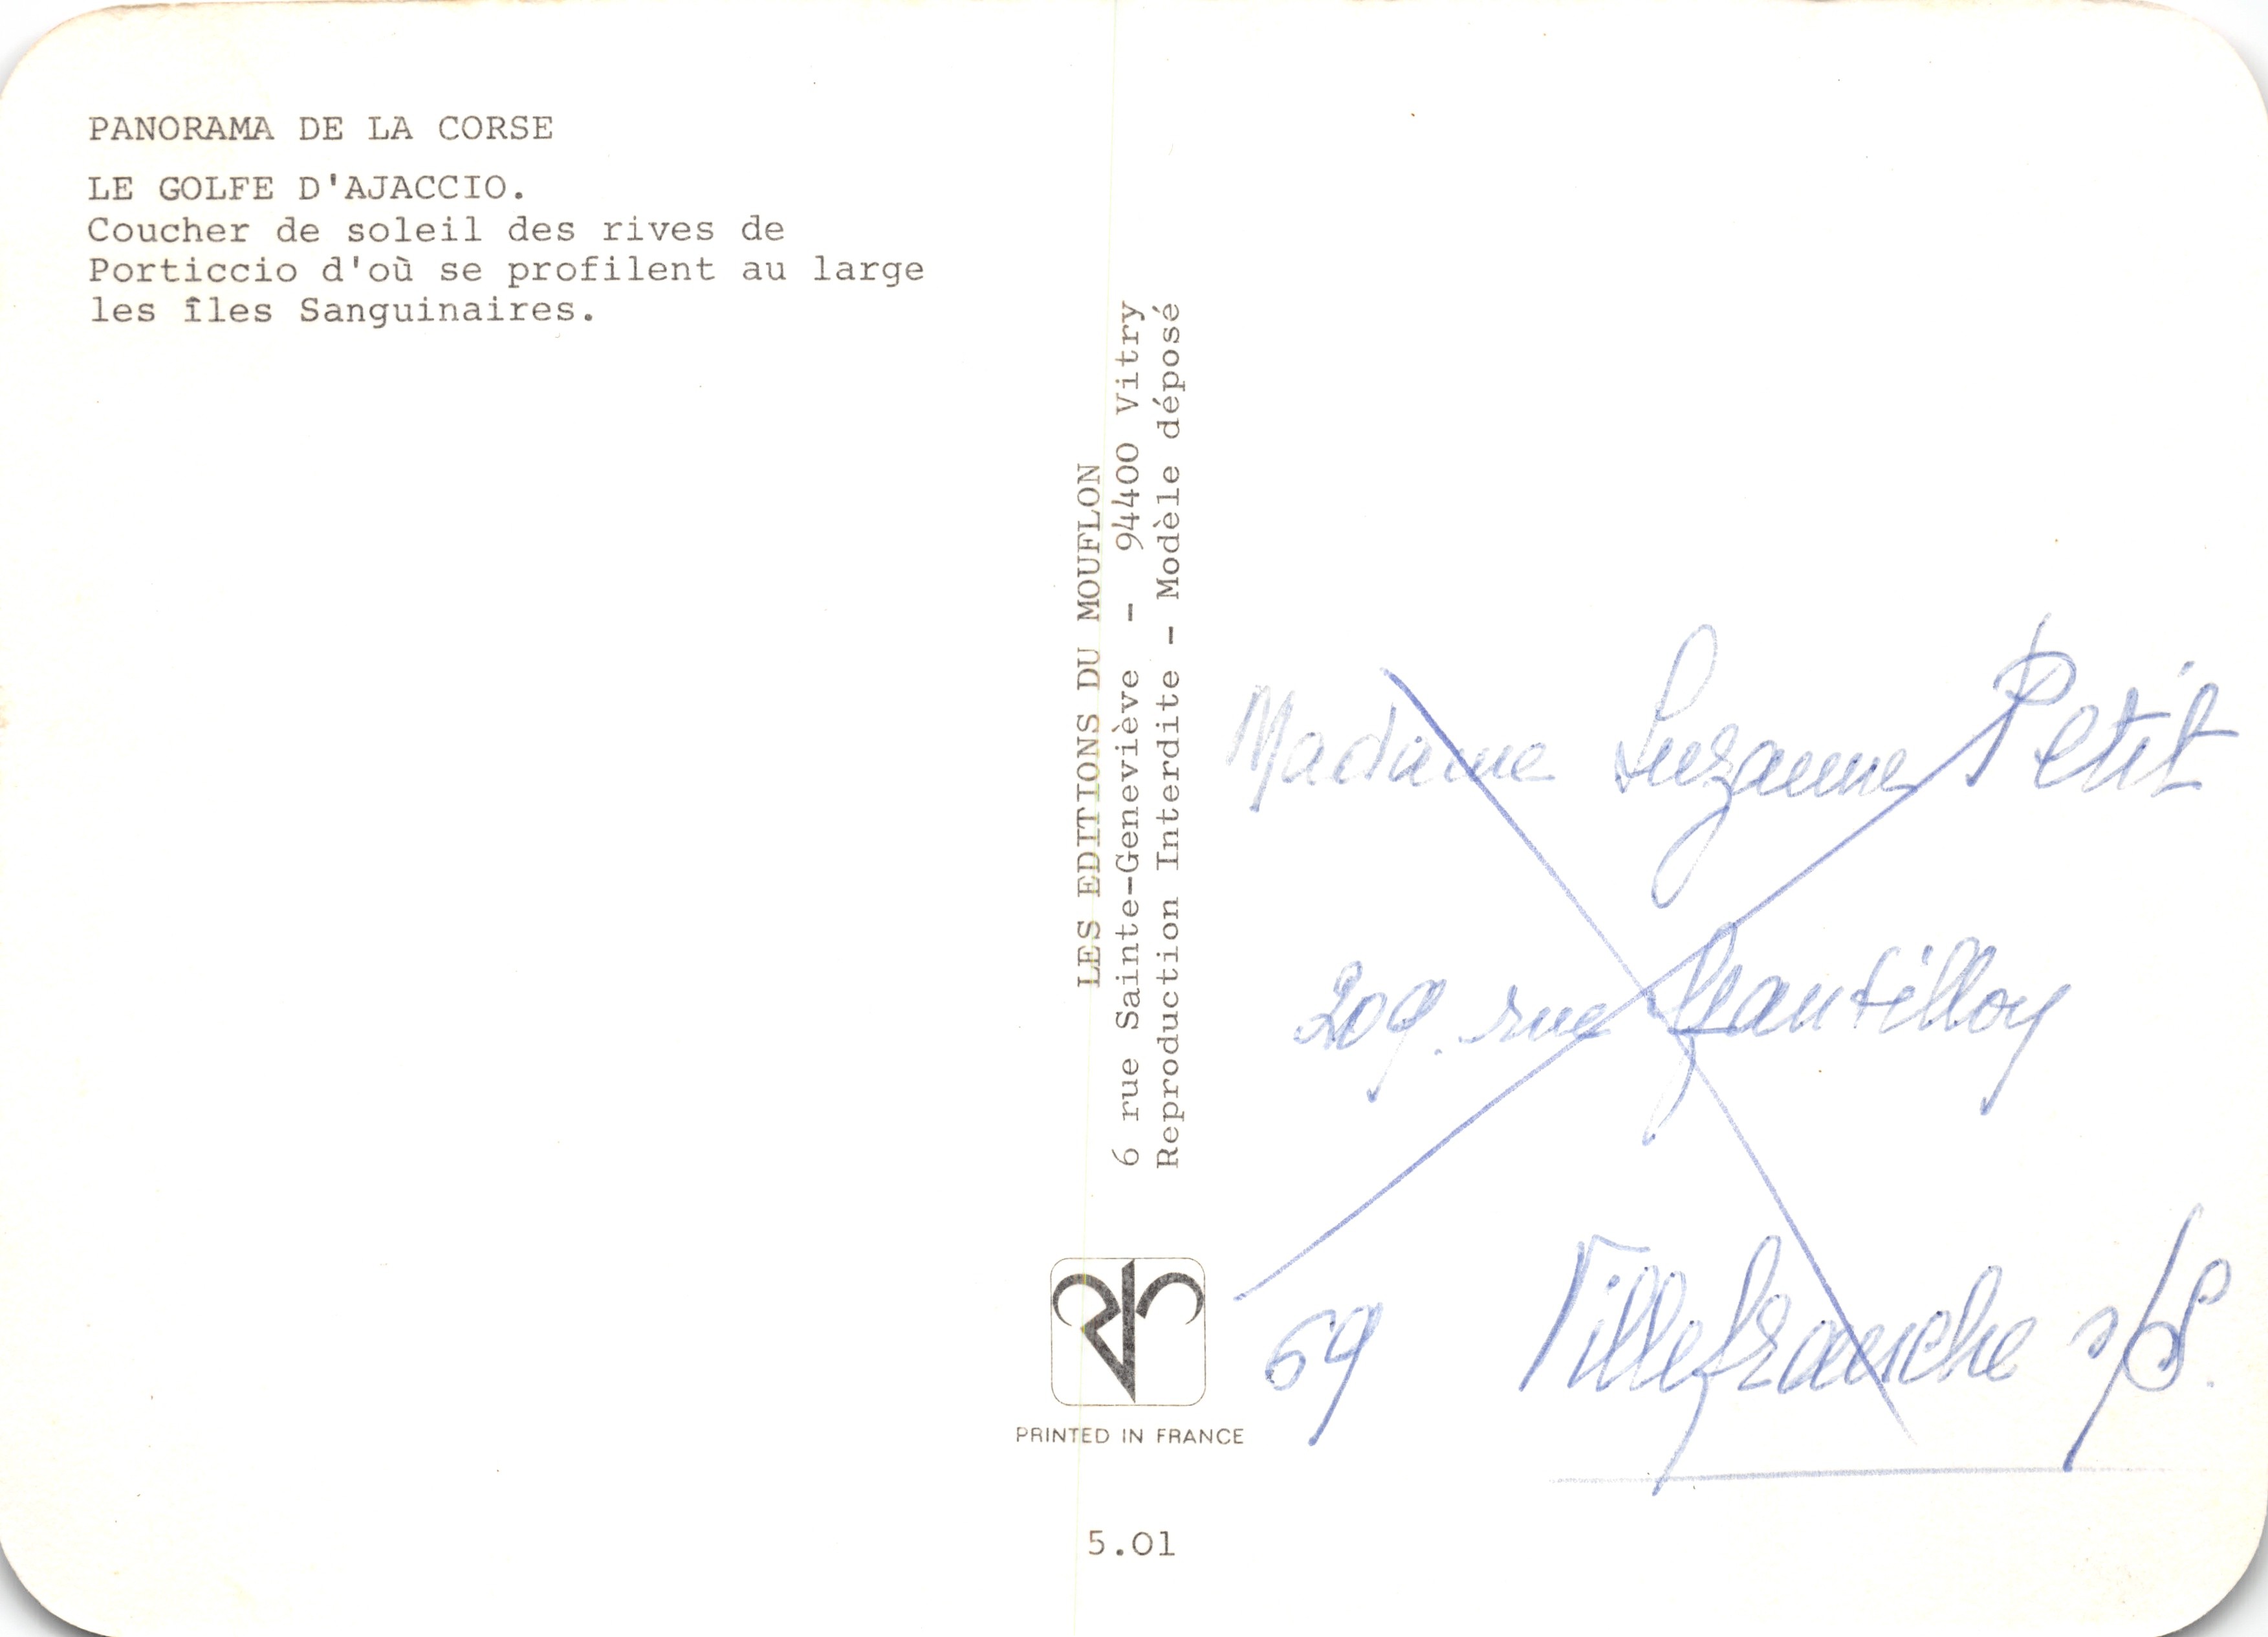 PANORAMA DE LA CORSE
LE GOLFE D'AJACCIO.
Coucher de soleil des rives de
Porticcio d'où se profilent au large
les îles Sanguinaires.
LES EDITIONS DU MOUFLON
6 rue Sainte-Geneviève - 94400 Vitry
Reproduction Interdite - Modèle déposé
PRINTED IN FRANCE
5.01
Madame Suzanne Petit
209. rue
69 Villefranche s/S.